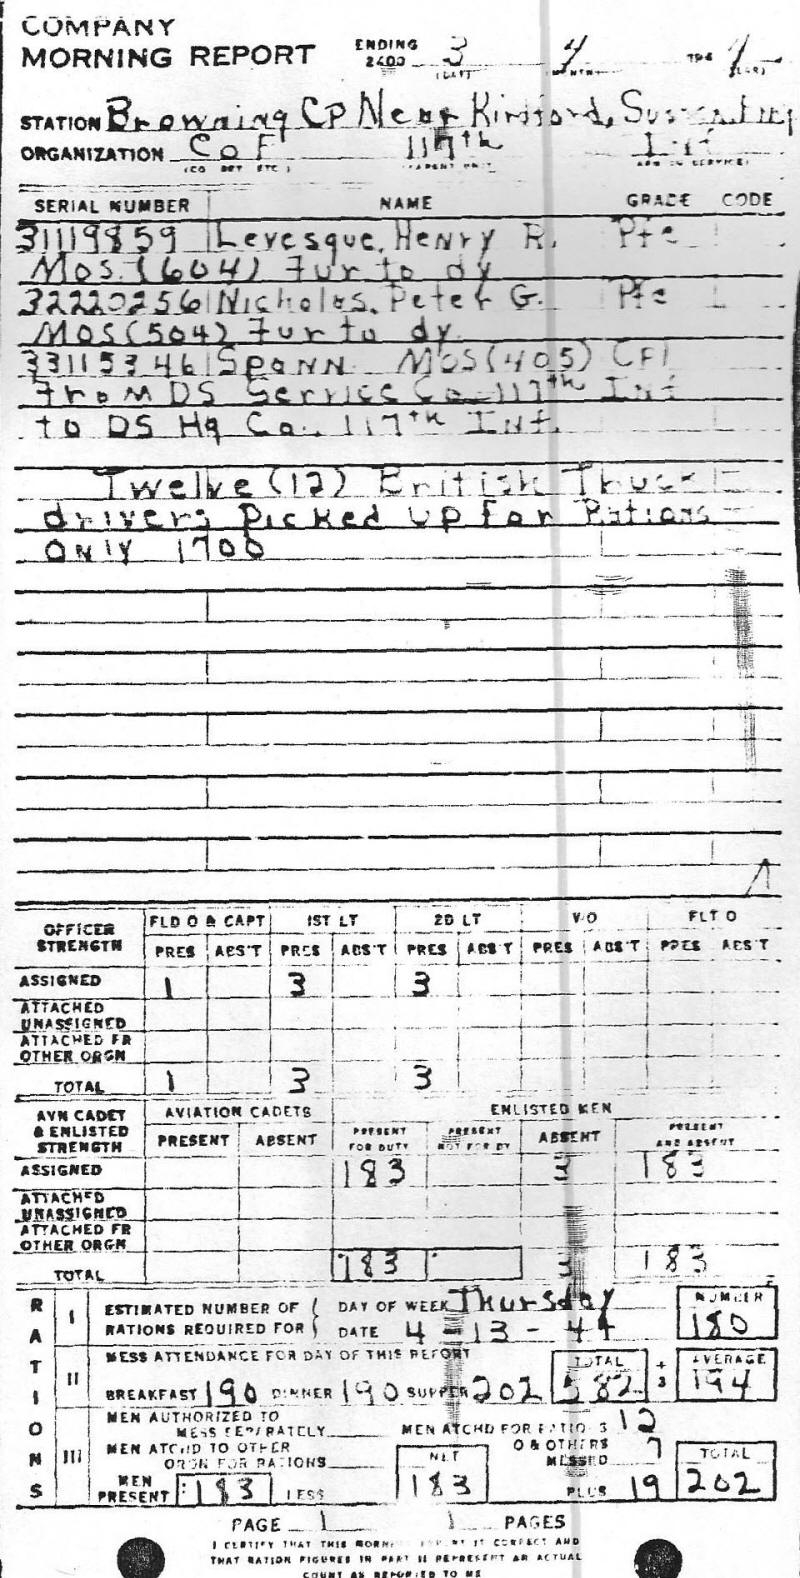 COMPANY
MORNING REPORT ENDING 2400 3 4 194
(DAY) (MONTH) (YEAR)
STATION Browning CP Near Kirdford, Sussex, Eng
ORGANIZATION Co F 117th Inf
(CO DET ETC) (PARENT UNIT) (ARM OR SERVICE)
SERIAL NUMBER NAME GRADE CODE
31119859 Levesque, Henry R. Pfc
MOS (604) Fur to dy
32220256 Nicholas, Peter G. Pfc
MOS (504) Fur to dy
33115346 Spann MOS (405) Cpl
From DS Service Co. 117th Inf
to DS Hq Co. 117th Inf.
Twelve (12) British Truck
drivers Picked up for Rations
Only 1700
OFFICER STRENGTH FLD O & CAPT 1ST LT 2D LT WO FLT O
PRES ABS'T PRES ABS'T PRES ABS'T PRES ABS'T PRES ABS'T
ASSIGNED 1 3 3
ATTACHED UNASSIGNED
ATTACHED FR OTHER ORGN
TOTAL 1 3 3
AVN CADET & ENLISTED STRENGTH AVIATION CADETS ENLISTED MEN
PRESENT ABSENT PRESENT FOR DUTY PRESENT NOT FOR DY ABSENT PRESENT AND ABSENT
ASSIGNED 183 3 183
ATTACHED UNASSIGNED
ATTACHED FR OTHER ORGN
TOTAL 183 3 183
RATIONS
I ESTIMATED NUMBER OF RATIONS REQUIRED FOR DAY OF WEEK Thursday NUMBER
DATE 4-13-44 180
II MESS ATTENDANCE FOR DAY OF THIS REPORT TOTAL ÷ 3 AVERAGE
BREAKFAST 190 DINNER 190 SUPPER 202 582 194
III MEN AUTHORIZED TO MESS SEPARATELY MEN ATCHD FOR RATIONS 12
MEN ATCHD TO OTHER ORGN FOR RATIONS NET O & OTHERS MESSED 7 TOTAL
MEN PRESENT 183 LESS 183 PLUS 19 202
PAGE 1 1 PAGES
I CERTIFY THAT THIS MORNING REPORT IS CORRECT AND
THAT RATION FIGURES IN PART II REPRESENT AN ACTUAL
COUNT AS REPORTED TO ME